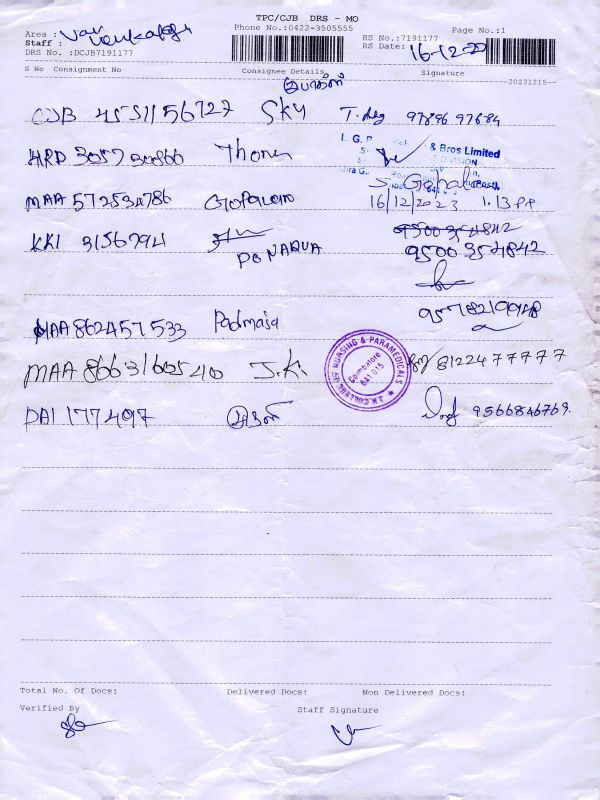 TPC/CJB DRS - MO
Phone No.:0422-3505555
Area :
Staff :
DRS No. :DCJB7191177
RS No.:7191177
RS Date: 16-12-20
Page No.:1
S No Consignment No Consignee Details Signature
--20231215--
CJB 4551156727 Sky 97896 97684
L. G. & Bros Limited
DIVISION
HRD Thomas
MAA 572534786 Gopalan S. Gopal
16/12/2023 1.13 PM
KKI 3156794 PONARUVA 9500354842
9500354842
MAA 862457533 Padmaja 9578219948
MAA 8663160540 J.K. 8122477777
J.K. COLLEGE OF NURSING & PARAMEDICALS
Coimbatore
641 015
PAI 177497 9566846769.
Total No. Of Docs: Delivered Docs: Non Delivered Docs:
Verified By Staff Signature